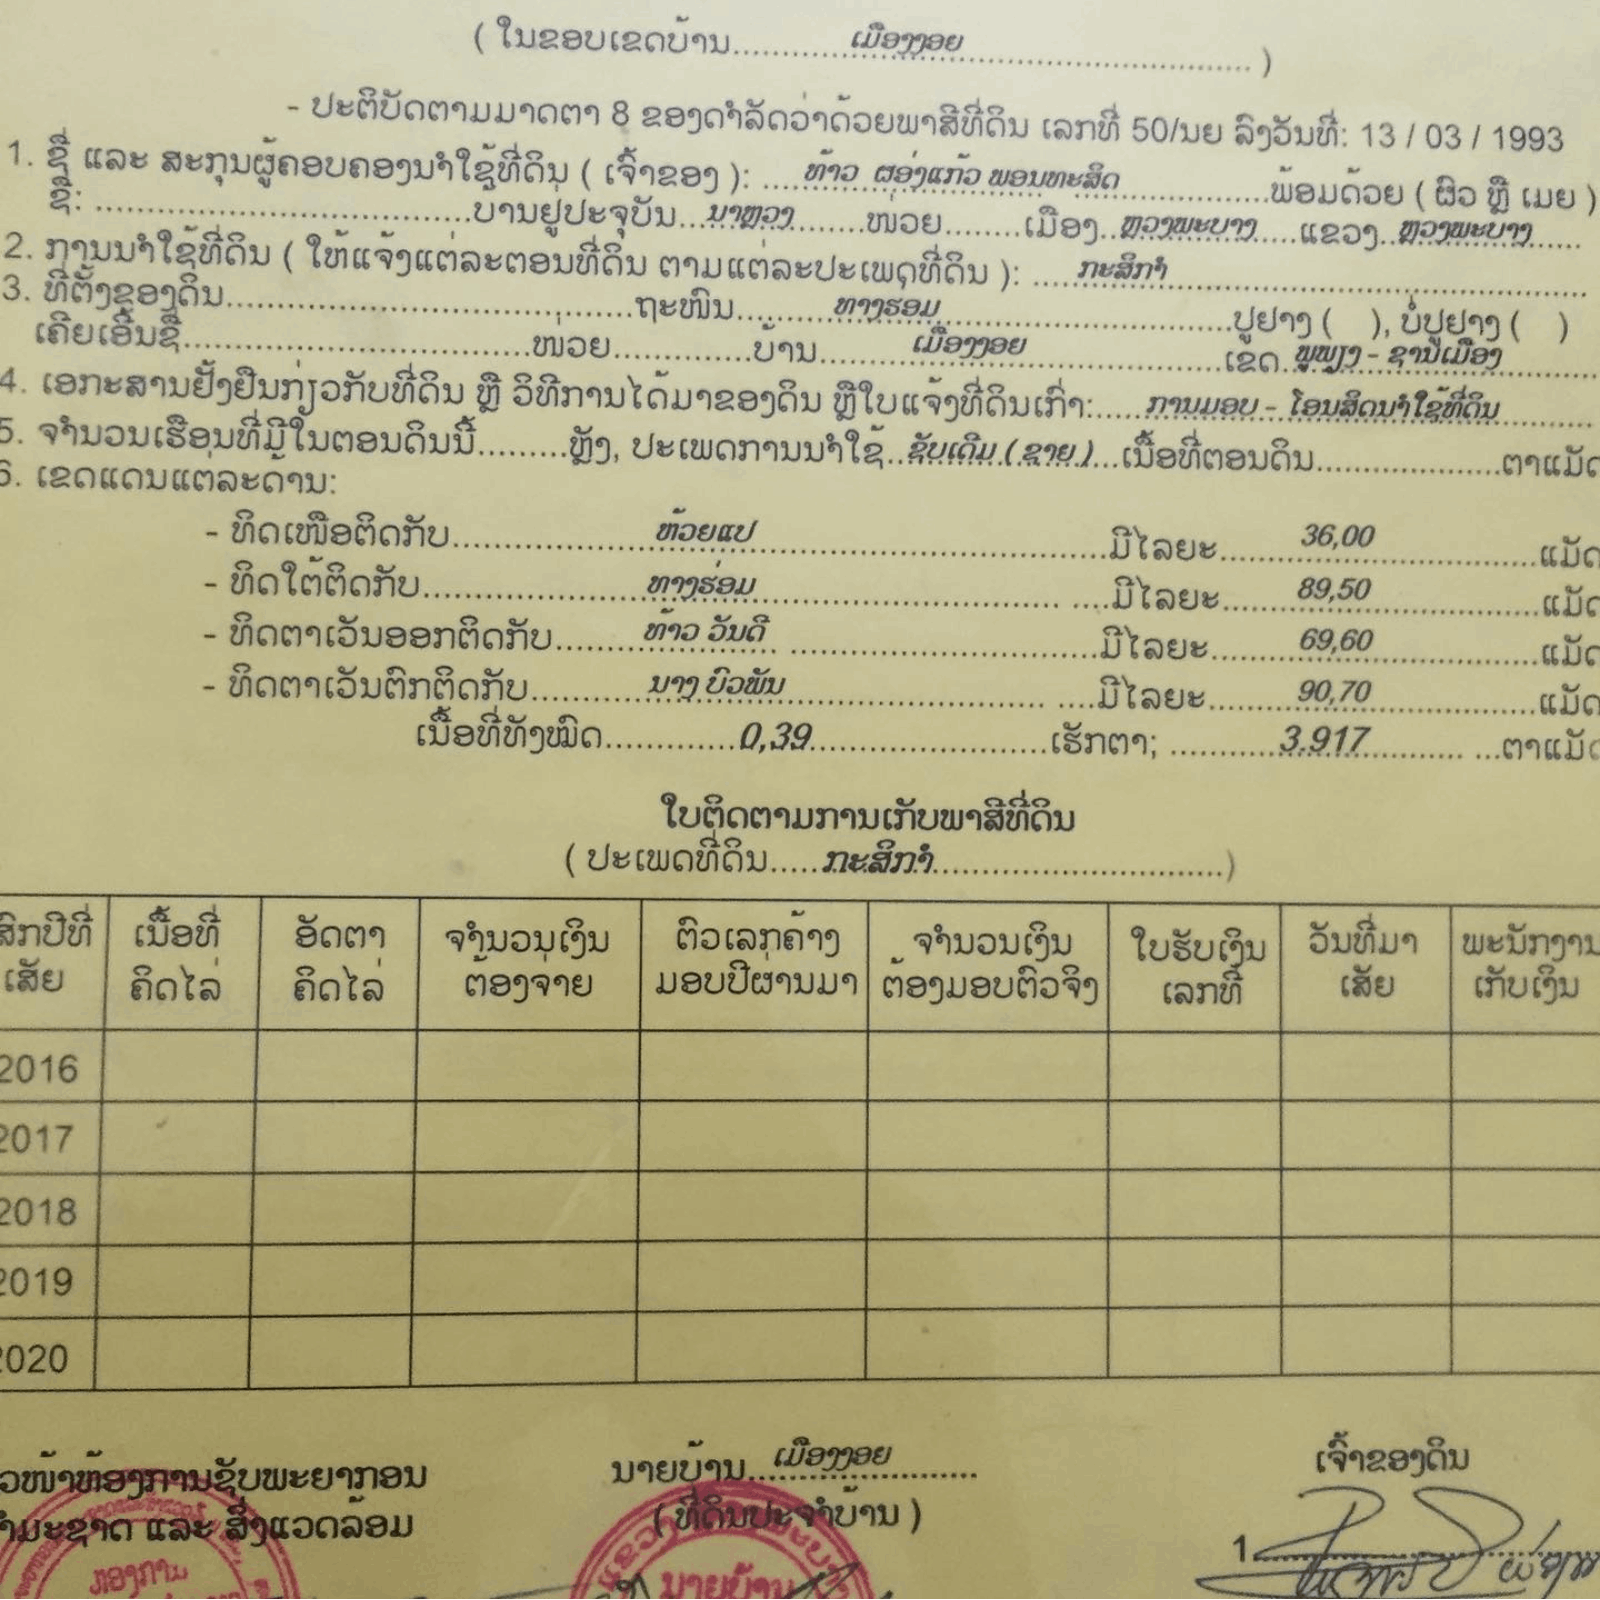 ( ໃນຂອບເຂດບ້ານ............ເມືອງງອຍ................................ )
- ປະຕິບັດຕາມມາດຕາ 8 ຂອງດຳລັດວ່າດ້ວຍພາສີທີ່ດິນ ເລກທີ່ 50/ນຍ ລົງວັນທີ່: 13 / 03 / 1993
1. ຊື່ ແລະ ສະກຸນຜູ້ຄອບຄອງນຳໃຊ້ທີ່ດິນ ( ເຈົ້າຂອງ ): ....ທ້າວ ຜອ່ງແກ້ວ ພອນທະສິດ...............ພ້ອມດ້ວຍ ( ຜົວ ຫຼື ເມຍ )
ຊື່: ..................................ບານຢູ່ປະຈຸບັນ...ນາຫຼວງ.......ໜ່ວຍ........ເມືອງ..ຫຼວງພະບາງ....ແຂວງ..ຫຼວງພະບາງ.....
2. ການນຳໃຊ້ທີ່ດິນ ( ໃຫ້ແຈ້ງແຕ່ລະຕອນທີ່ດິນ ຕາມແຕ່ລະປະເພດທີ່ດິນ ): .....ກະສິກຳ..............................
3. ທີ່ຕັ້ງຂອງດິນ....................................ຖະໜົນ..........ທາງຮອມ..........................ປູຢາງ ( ), ບໍ່ປູຢາງ ( )
ເຄີຍເອີ້ນຊື່................................ໜ່ວຍ.............ບ້ານ..........ເມືອງງອຍ.....................ເຂດ..ພູພຽງ - ຊານເມືອງ.........
4. ເອກະສານຢັ້ງຢືນກ່ຽວກັບທີ່ດິນ ຫຼື ວິທີການໄດ້ມາຂອງດິນ ຫຼືໃບແຈ້ງທີ່ດິນເກົ່າ:.....ການມອບ - ໂອນສິດນຳໃຊ້ທີ່ດິນ.........
5. ຈຳນວນເຮືອນທີ່ມີໃນຕອນດິນນີ້.........ຫຼັງ, ປະເພດການນຳໃຊ້..ຊັບເດີມ ( ຊາຍ )...ເນື້ອທີ່ຕອນດິນ.................ຕາແມັດ
6. ເຂດແດນແຕ່ລະດ້ານ:
- ທິດເໜືອຕິດກັບ....................ຫ້ວຍແປ...................................ມີໄລຍະ........36,00...............ແມັດ
- ທິດໃຕ້ຕິດກັບ......................ທາງຮ່ອມ.............................. ....ມີໄລຍະ.......89,50................ແມັດ
- ທິດຕາເວັນອອກຕິດກັບ.........ທ້າວ ວັນດີ. ...............................ມີໄລຍະ........69,60...............ແມັດ
- ທິດຕາເວັນຕົກຕິດກັບ............ນາງ ບົວພັນ.......................... ....ມີໄລຍະ........90,70................ແມັດ
ເນື້ອທີ່ທັງໝົດ.............0,39.......................ເຮັກຕາ; ..........3.917......... ...ຕາແມັດ
ໃບຕິດຕາມການເກັບພາສີທີ່ດິນ
( ປະເພດທີ່ດິນ.....ກະສິກຳ.............................)
ສົກປີທີ່ ເສັຍ ເນື້ອທີ່ ຄິດໄລ່ ອັດຕາ ຄິດໄລ່ ຈຳນວນເງິນ ຕ້ອງຈ່າຍ ຕົວເລກຄ້າງ ມອບປີຜ່ານມາ ຈຳນວນເງິນ ຕ້ອງມອບຕົວຈິງ ໃບຮັບເງິນ ເລກທີ່ ວັນທີ່ມາ ເສັຍ ພະນັກງານ ເກັບເງິນ
2016
2017
2018
2019
2020
ວໜ້າຫ້ອງການຊັບພະຍາກອນ
ຳມະຊາດ ແລະ ສິ່ງແວດລ້ອມ
ນາຍບ້ານ...ເມືອງງອຍ.........
( ທີ່ດິນປະຈຳບ້ານ )
ເຈົ້າຂອງດິນ
1
ຫ້ອງການ
ນາຍບ້ານ